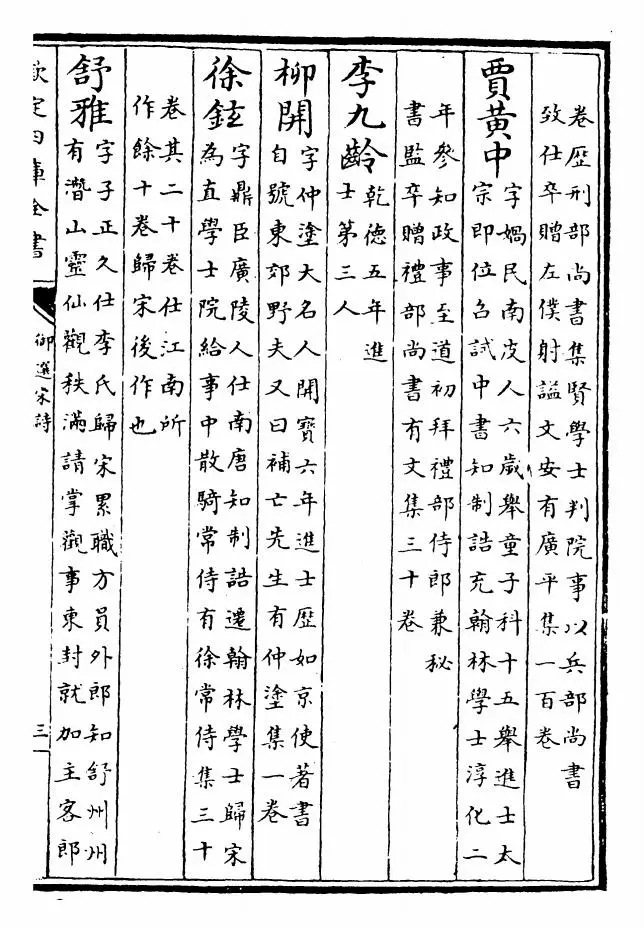 卷歷刑部尚書集賢學士判院事以兵部尚書
致仕卒贈左僕射謚文安有廣平集一百卷
賈黃中
字媧民南皮人六歲舉童子科十五舉進士太
宗即位召試中書知制誥充翰林學士淳化二
年參知政事至道初拜禮部侍郎兼秘
書監卒贈禮部尚書有文集三十卷
李九齡
乾德五年進
士第三人
柳開
字仲塗大名人開寶六年進士歷如京使著書
自號東郊野夫又曰補亡先生有仲塗集一卷
徐鉉
字鼎臣廣陵人仕南唐知制誥遷翰林學士歸宋
為直學士院給事中散騎常侍有徐常侍集三十
卷其二十卷仕江南所
作餘十卷歸宋後作也
舒雅
字子正久仕李氏歸宋累職方員外郎知舒州州
有潛山靈仙觀秩滿請掌觀事東封就加主客郎
欽定四庫全書
御選宋詩
三